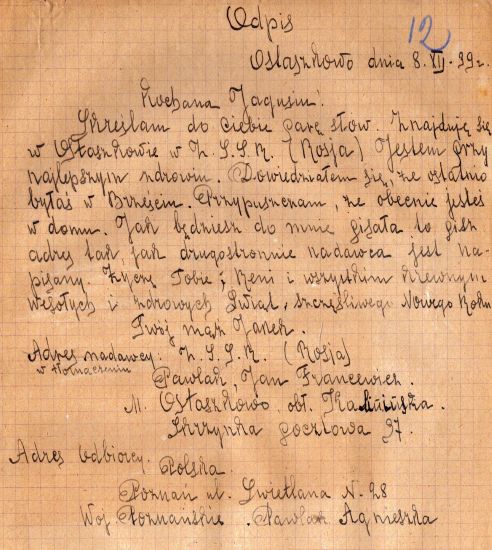 Odpis
12
Ostaszkowo dnia 8.XII.39r.
Kochana Jagusiu!
Skreślam do Ciebie parę słow. Znajduję się
w Ostaszkowie w Z.S.S.R. (Rosja) Jestem przy
najlepszym zdrowiu. Dowiedziałem się, że ostatnio
byłaś w Brześciu. Przypuszczam, że obecnie jesteś
w domu. Jak będziesz do mnie pisała to pisz
adres tak, jak drugostronnie nadawca jest na-
pisany. Życzę Tobie, Reni i wszystkim krewnym
wesołych i zdrowych Świąt, szczęśliwego Nowego Roku
Twój mąż Janek.
Adres nadawcy: Z.S.S.R. (Rosja)
w tłomaczeniu
Pawlak, Jan Francewicz.
M. Ostaszkowo, obł. Kalinińska.
Skrzynka pocztowa 37.
Adres Odbiorcy. Polska.
Poznań ul. Swietlana N. 28
Woj. Poznańskie. Pawlak Agnieszka